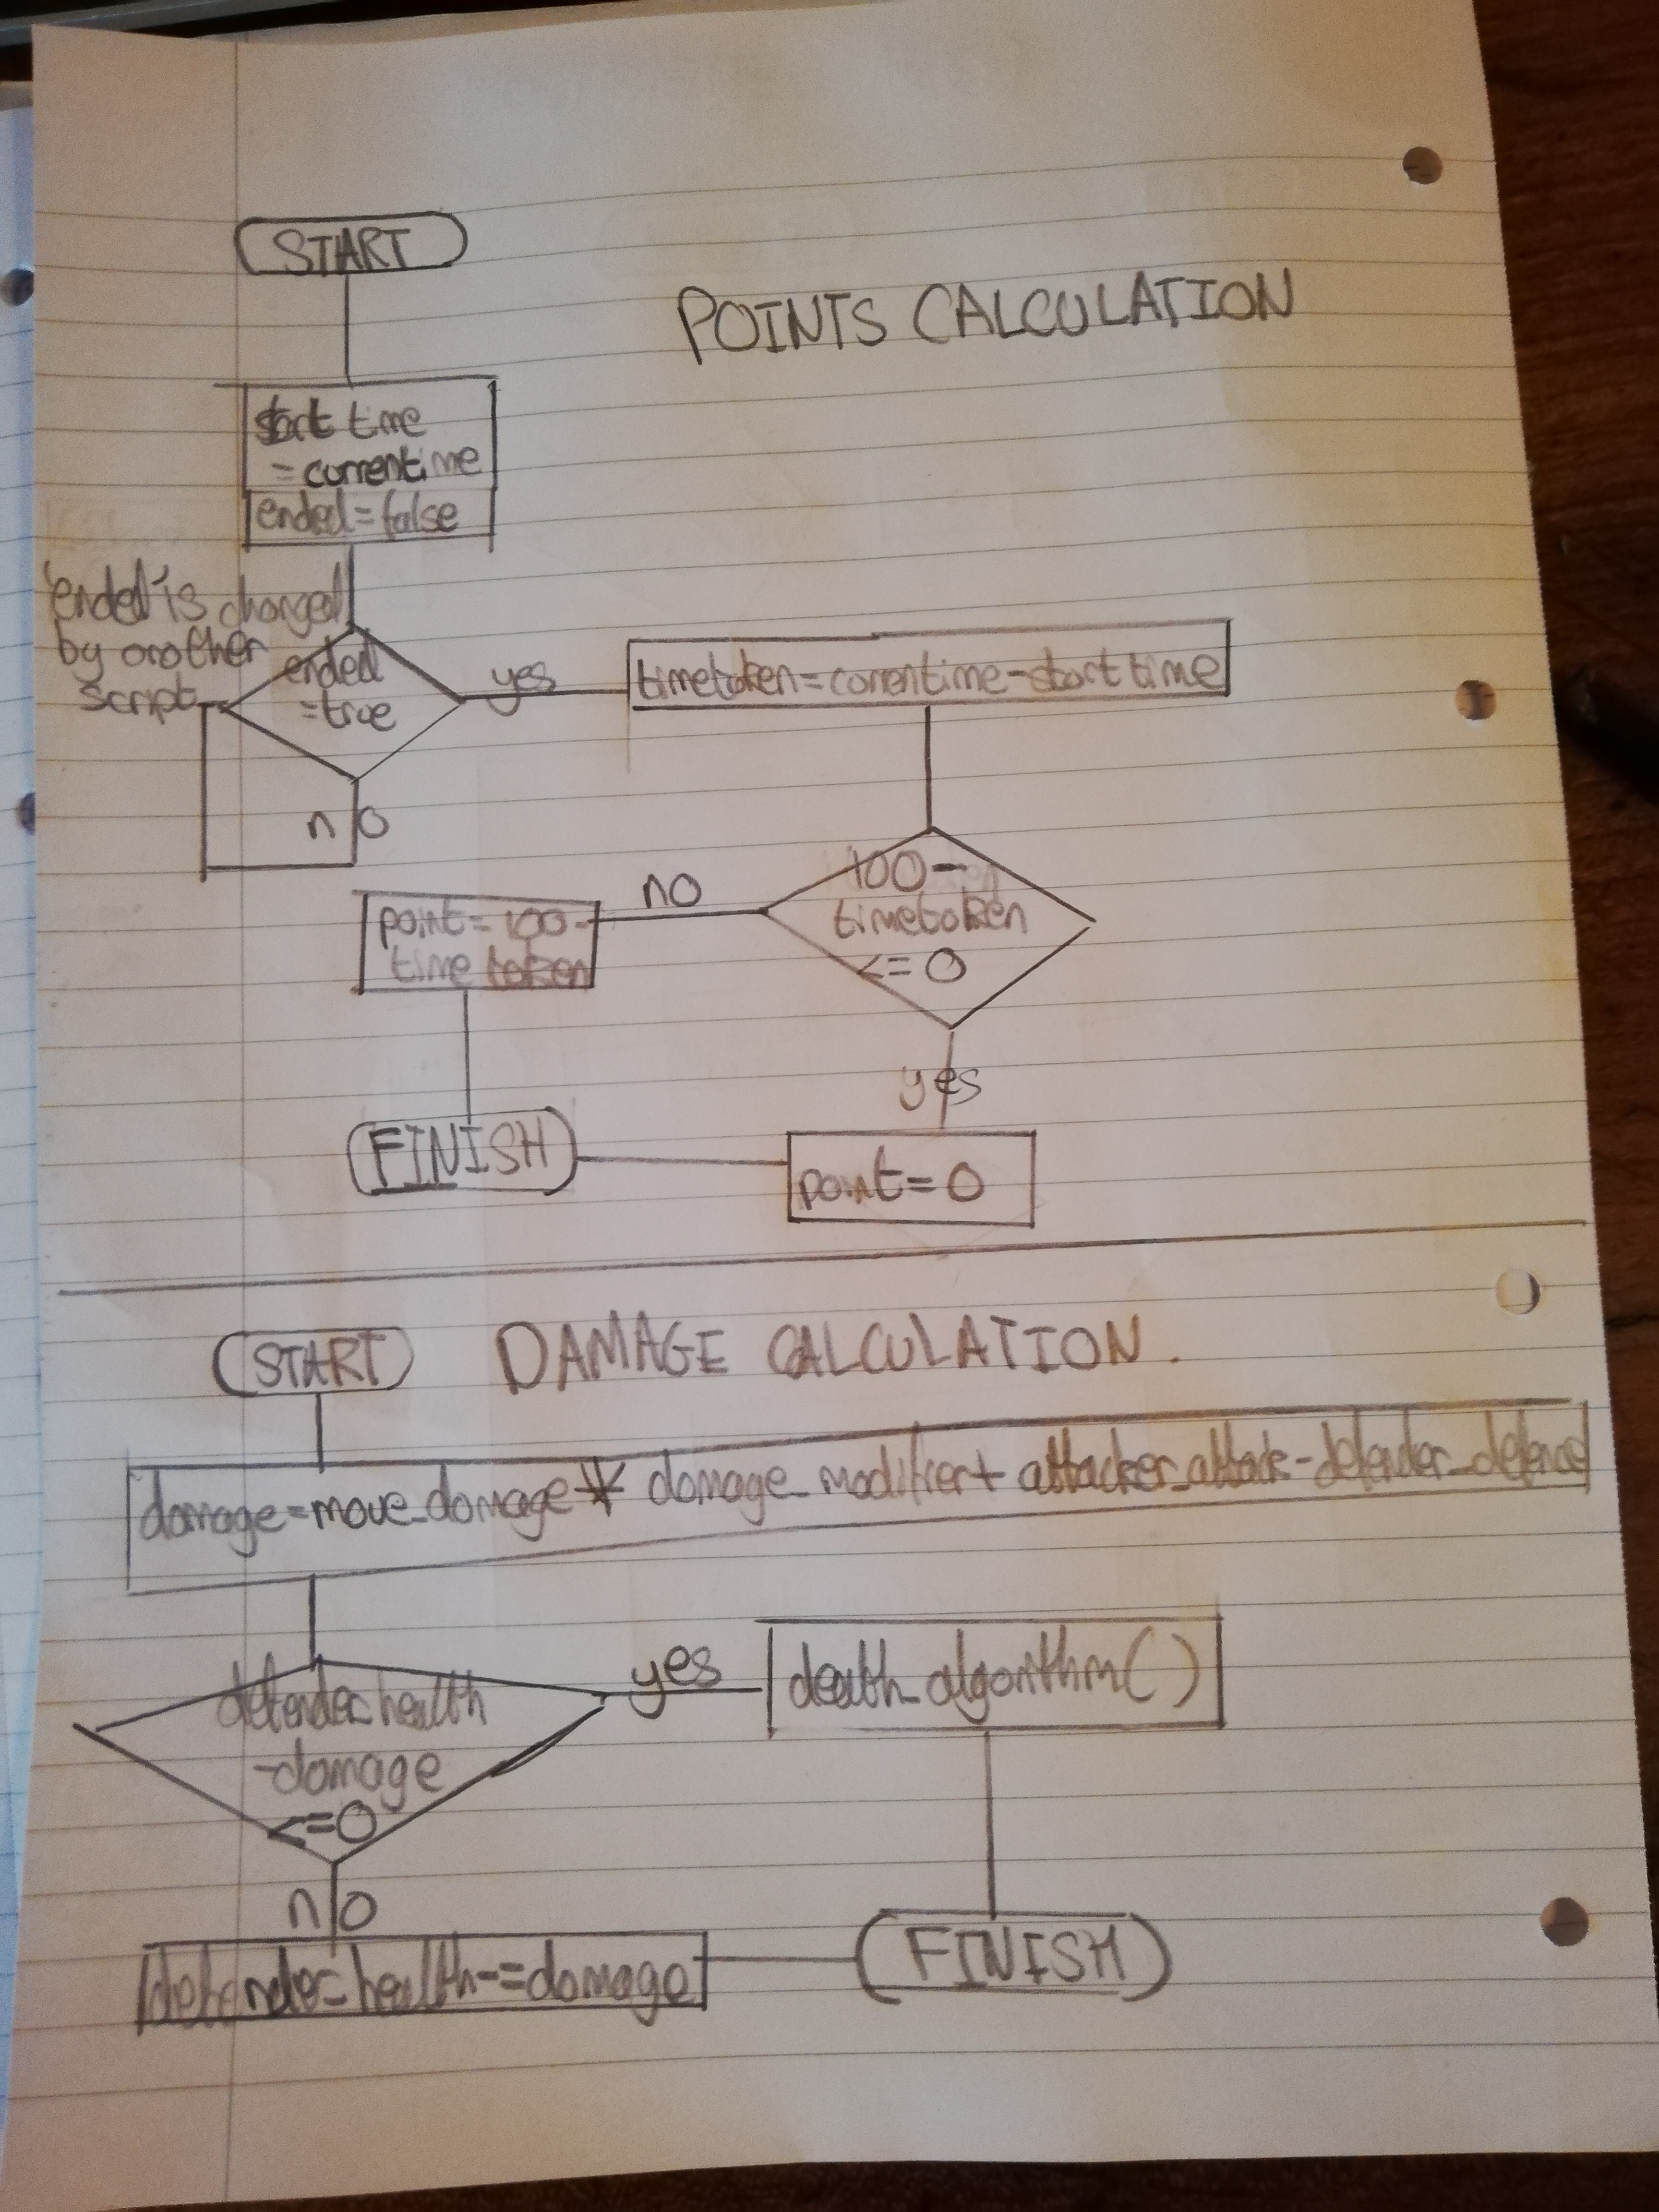 START
POINTS CALCULATION
start time
=currentime
ended=false
'ended' is changed
by another
script
ended
=true
yes
timetaken=currentime-start time
no
100-
timetaken
<=0
no
point=100-
time taken
yes
FINISH
point=0
START
DAMAGE CALCULATION.
damage=move_damage* damage_modifier+ attacker_attack-defender_defence
defender_health
-damage
<=0
yes
death_algorithm()
no
defender_health-=damage
FINISH